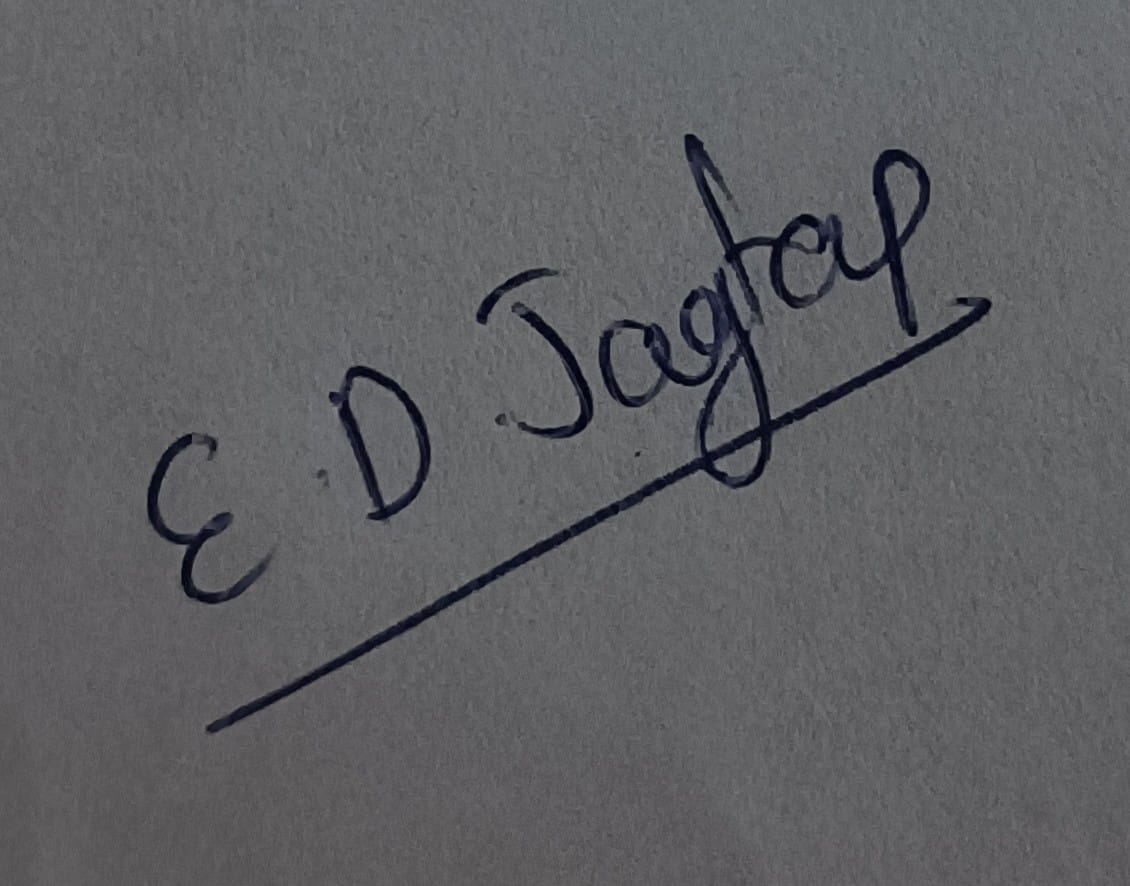 E. D. Jagtap